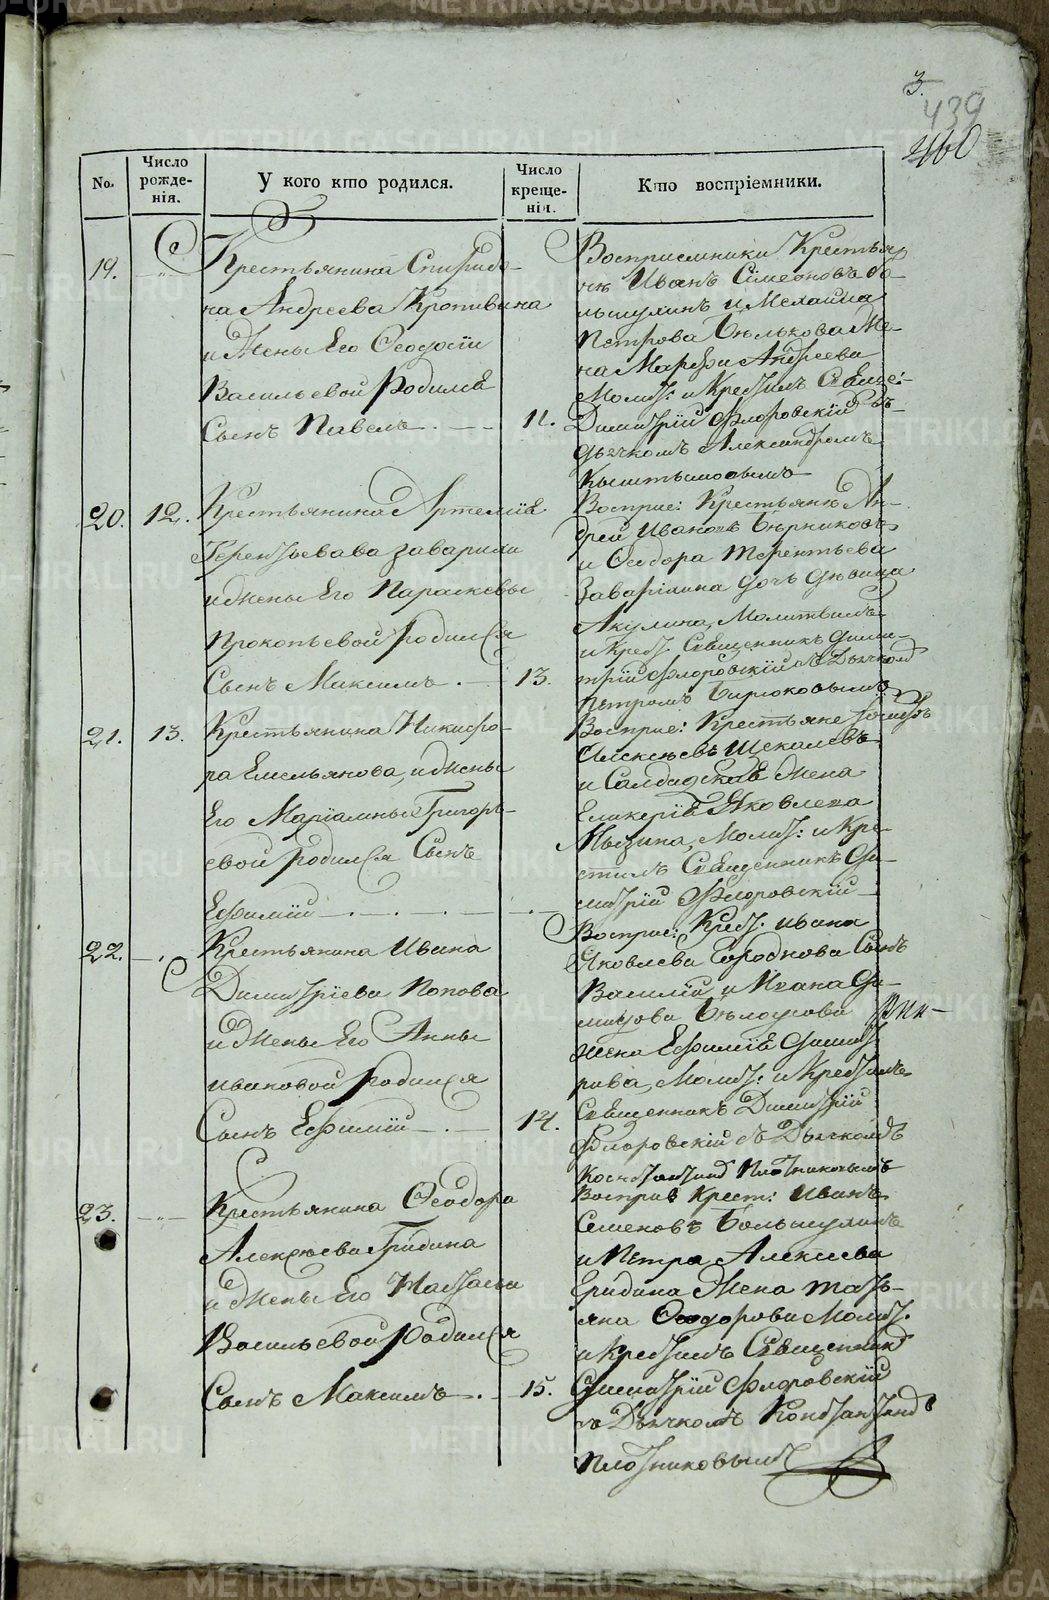 3.
439
460
No.
Число рожде-нія.
У кого кто родился.
Число креще-нія.
Кто воспріемники.
19.
Крестьянина Спиридо-
на Андреева Кропивина
и жены Его Ѳеодосіи
Васильевой родился
Сынъ Павелъ
11.
Восприемники Крестья
не Иванъ Сімеоновъ Бо-
льшулинъ и Меланиа
Петрова Бѣлькова Же-
на Марфа Андреева
Молит: и Крестилъ Свяще:
Димитрій Флоровскій съ
дьячкомъ Александромъ
Кыштымовымъ
20.
12.
Крестьянина Артемія
Терентьевава Заварина
и жены Его Параскевы
Прокопьевой родился
Сынъ Максимъ
13.
Восприе: Крестьяне Ан-
дрей Ивановъ Бѣрниковъ
и Ѳеодора Терентьева
Заваріхина дочь дѣвица
Акулина, Молитвилъ
и Крест. Священникъ Дими-
трій Флоровскій съ Дьячкомъ
Петромъ Бирюковымъ
21.
13.
Крестьянина Никифо-
ра Емельянова, и жены
Его Маріамны Григорь-
евой родился Сынъ
Ефимій
Восприе: Крестьяне
Алексѣевъ Щекалевъ
и Салдадская Жена
Гликерія Яковлева
Мызина, Молит: и Кре-
стилъ Священникъ Ди-
митрій Флоровскій
22.
Крестьянина Ивана
Димитріева Попова
и жены Его Анны
Ивановой родился
Сынъ Ефимій
14.
Восприе: Крест. Ивана
Яковлева Сынъ
Василій и Ивана Ди-
митрова Бѣлоусова
жена Ефимія Димит
рива, Молит: и Крестилъ
Священникъ Димитрій
Флоровскій съ Дьячкомъ
Константіномъ Плотниковымъ
23.
Крестьянина Ѳеодора
Алексѣева Гридина
и жены Его Настасьи
Васильевой родился
Сынъ Максимъ
15.
Восприе Крест: Иванъ
Семеновъ Большулинъ
и Петра Алексиева
Гридина Жена Тать-
яна Ѳеодорова Молит.
и Крестилъ Священник
Димитрій Флоровскій
съ Дьячкомъ Константіномъ
Плотниковымъ